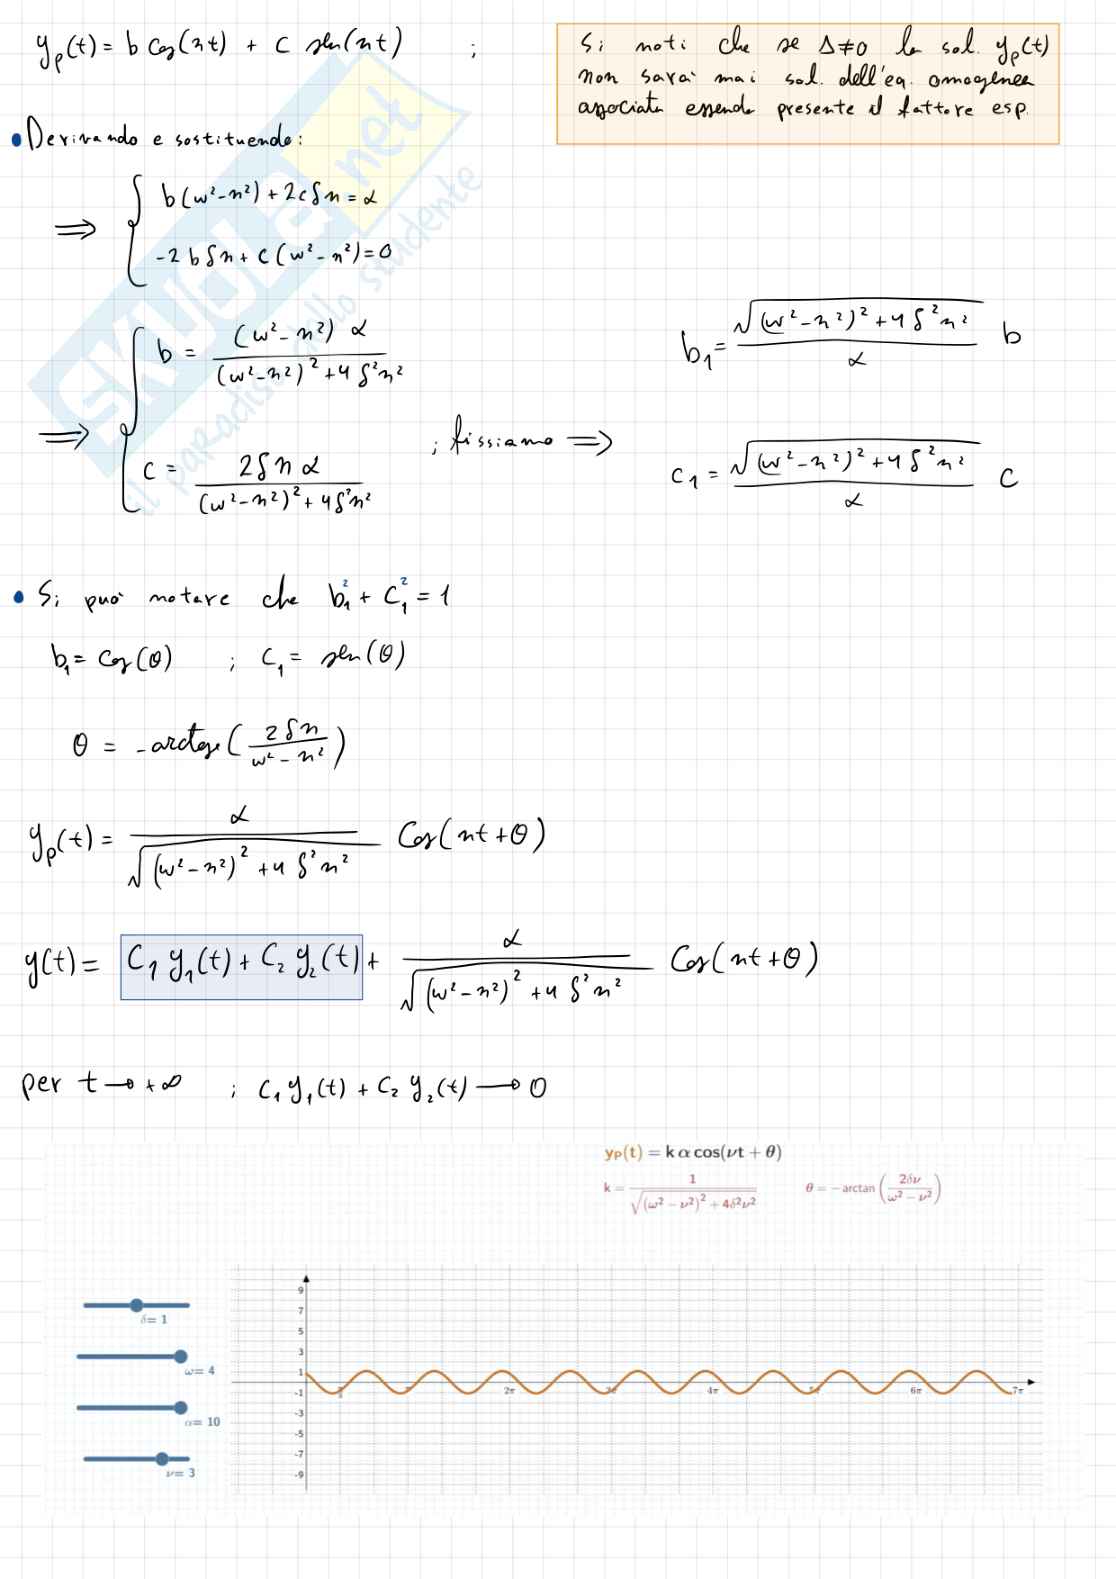 yₚ(t) = b cos(nt) + c sen(nt) ;
Si noti che se Δ≠0 la sol. yₚ(t)
non sarà mai sol. dell'eq. omogenea
associata essendo presente il fattore esp.
• Derivando e sostituendo:
⟹ { b(w²-n²) + 2cδn = α
-2bδn + c(w²-n²) = 0
⟹ { b = (w²-n²) α / ((w²-n²)² + 4δ²n²)
c = 2δnα / ((w²-n²)² + 4δ²n²)
; fissiamo ⟹
b₁ = √((w²-n²)² + 4δ²n²) / α b
c₁ = √((w²-n²)² + 4δ²n²) / α c
• Si può notare che b₁² + c₁² = 1
b₁ = cos(θ) ; c₁ = sen(θ)
θ = -arctg(2δn / (w²-n²))
yₚ(t) = α / √((w²-n²)² + 4δ²n²) Cos(nt+θ)
y(t) = C₁y₁(t) + C₂y₂(t) + α / √((w²-n²)² + 4δ²n²) Cos(nt+θ)
per t → +∞ ; C₁y₁(t) + C₂y₂(t) → 0
yₚ(t) = k α cos(νt + θ)
k = 1 / √((ω² − ν²)² + 4δ²ν²) θ = −arctan(2δν / (ω² − ν²))
δ= 1
ω= 4
α= 10
ν= 3
9
7
5
3
1
-1
-3
-5
-7
-9
2π 4π 6π 7π
SKUOLA.net
il paradiso dello studente